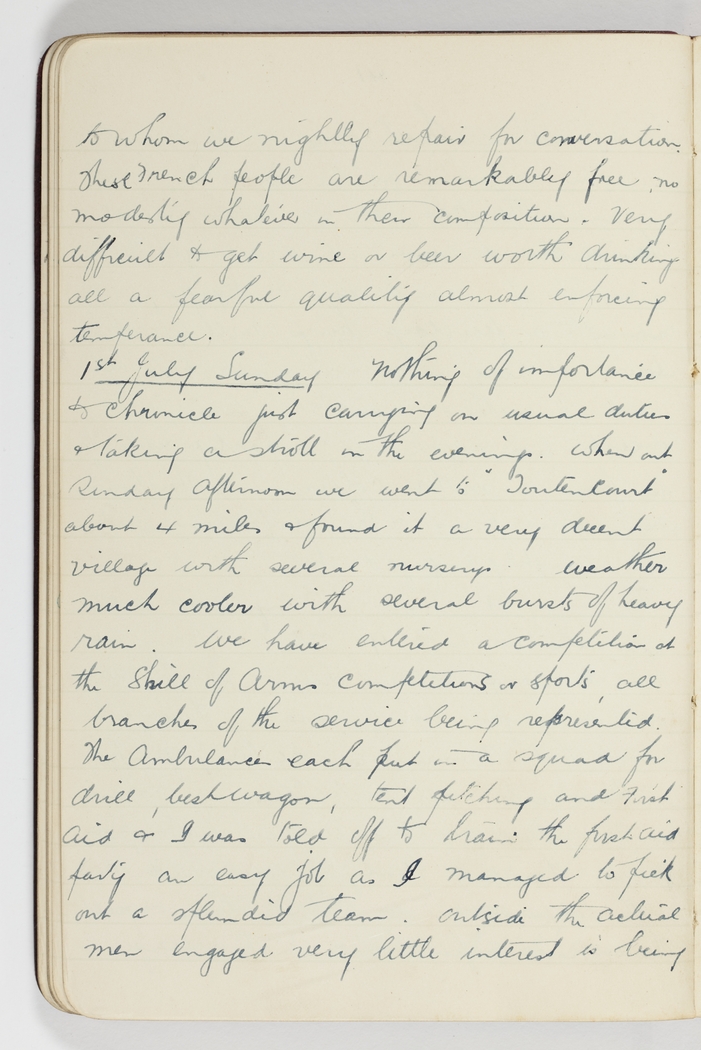 to whom we nightlly repair for conversation.
These French people are remarkably free, no
modesty whatever in their composition. Very
difficult to get wine or beer worth drinking
all a fearful quality almost enforcing
temperance.
1st July Sunday Nothing of importance
to chronicle just carrying on usual duties
& taking a stroll in the evenings. When out
Sunday afternoon we went to "Toutencourt"
about 4 miles & found it a very decent
village with several nurserys. Weather
much cooler with several bursts of heavy
rain. We have entered a competition at
the Skill of Arms competitions or sports, all
branches of the service being represented.
The Ambulances each put in a squad for
drill, best wagon, tent pitching and First
Aid & I was told off to train the first aid
party an easy job as I managed to pick
out a splendid team. Outside the actual
men engaged very little interest is being